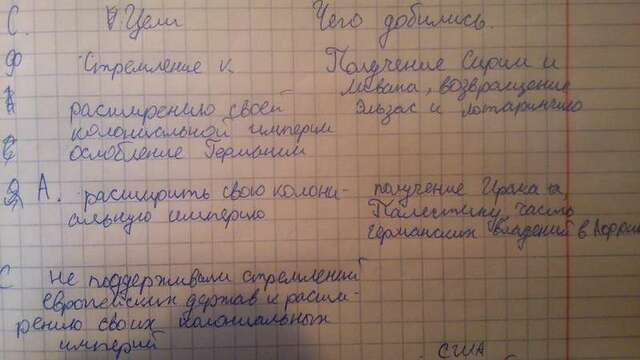 С. Цели Чего добились.
Ф Стремление к Получение Сирии и
Ливана, возвращение
расширению своей Эльзас и Лотарингию
колониальной империи
ослобление Германии
А. расширить свою колони- получение Ирака
альную империю Палестину, часть
германских владений в
С Не поддерживали стремлений
европейских держав к расши-
рению своих колониальных
империй
США